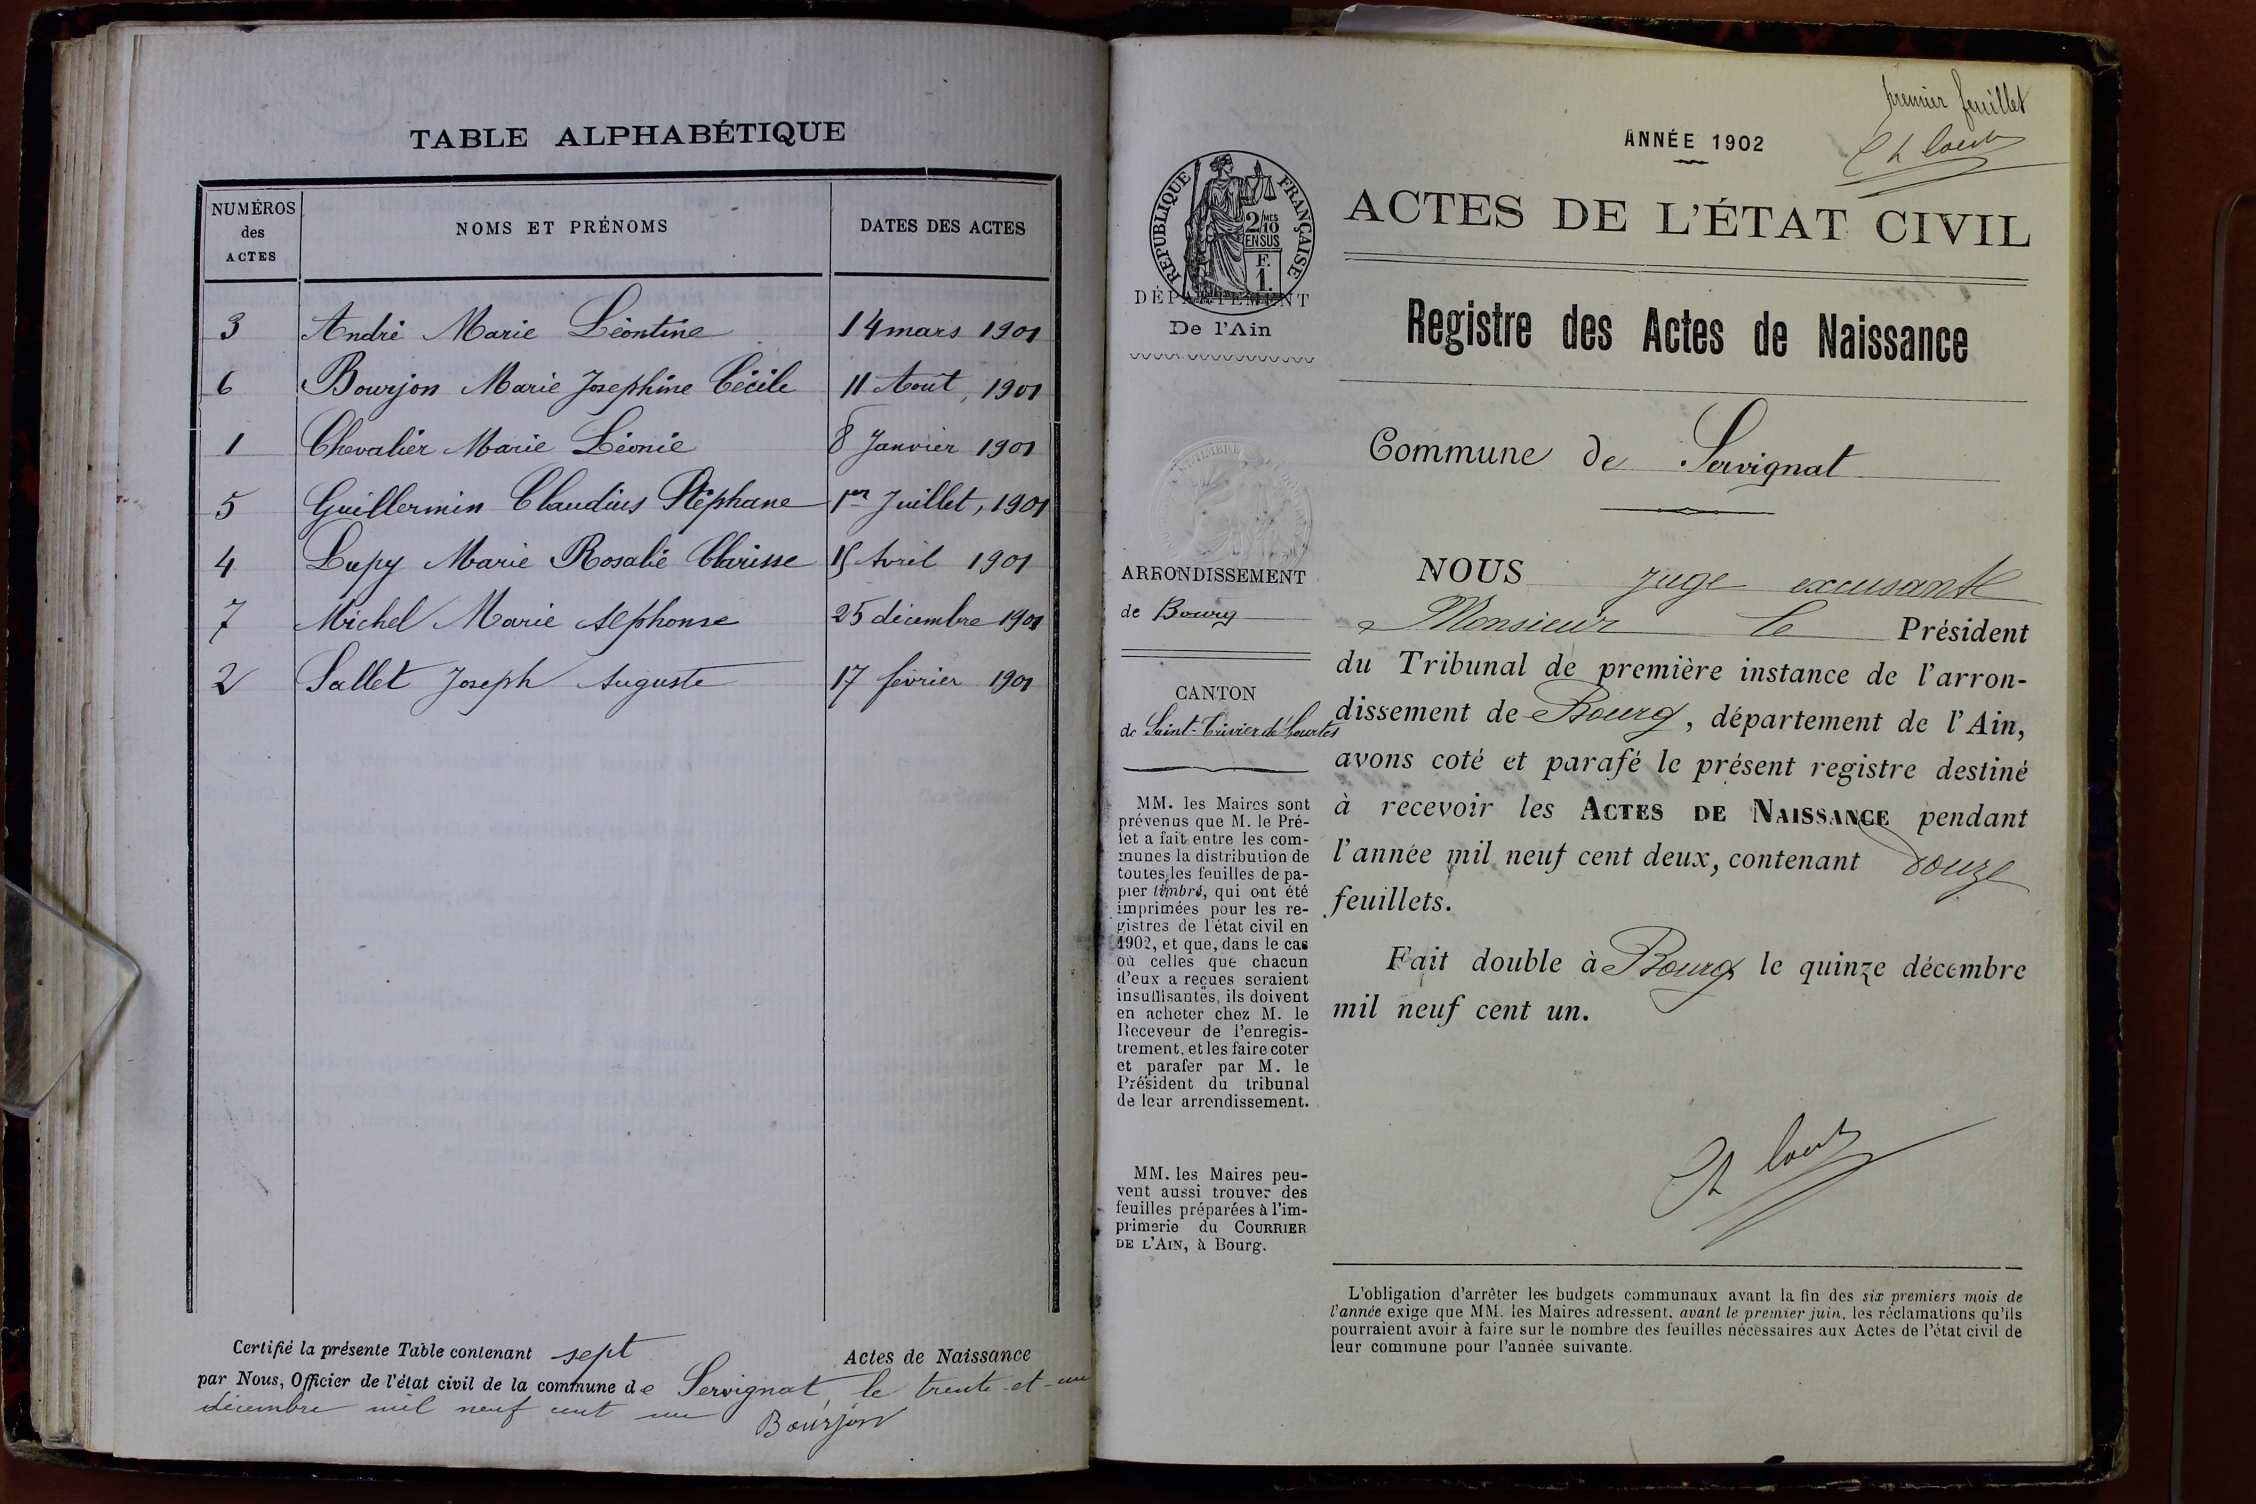 TABLE ALPHABÉTIQUE
NUMÉROS des ACTES
NOMS ET PRÉNOMS
DATES DES ACTES
3 André Marie Léontine 14 mars 1901
6 Bourjon Marie Josephine Cécile 11 Août, 1901
1 Chevalier Marie Léonie 8 Janvier 1901
5 Guillermin Claudius Stéphane 1er Juillet, 1901
4 Lupy Marie Rosalie Clarisse 15 Avril 1901
7 Michel Marie Alphonse 25 décembre 1901
2 Sallet Joseph Auguste 17 février 1901
Certifié la présente Table contenant sept Actes de Naissance
par Nous, Officier de l'état civil de la commune de Servignat, le trente-et-un
décembre mil neuf cent un
Bourjon
premier feuillet
ANNÉE 1902
RÉPUBLIQUE FRANÇAISE
2/10 MES
EN SUS
F.
1.
DÉPARTEMENT
De l'Ain
ARRONDISSEMENT
de Bourg
CANTON
de Saint-Trivier de Courtes
MM. les Maires sont
prévenus que M. le Pré-
fet a fait entre les com-
munes la distribution de
toutes les feuilles de pa-
pier timbré, qui ont été
imprimées pour les re-
gistres de l'état civil en
1902, et que, dans le cas
où celles que chacun
d'eux a reçues seraient
insuffisantes, ils doivent
en acheter chez M. le
Receveur de l'enregis-
trement, et les faire coter
et parafer par M. le
Président du tribunal
de leur arrondissement.
MM. les Maires peu-
vent aussi trouver des
feuilles préparées à l'im-
primerie du COURRIER
DE L'AIN, à Bourg.
ACTES DE L'ÉTAT CIVIL
Registre des Actes de Naissance
Commune de Servignat
NOUS juge excusant
Monsieur le Président
du Tribunal de première instance de l'arron-
dissement de Bourg, département de l'Ain,
avons coté et parafé le présent registre destiné
à recevoir les ACTES DE NAISSANCE pendant
l'année mil neuf cent deux, contenant douze
feuillets.
Fait double à Bourg le quinze décembre
mil neuf cent un.
L'obligation d'arrêter les budgets communaux avant la fin des six premiers mois de
l'année exige que MM. les Maires adressent, avant le premier juin, les réclamations qu'ils
pourraient avoir à faire sur le nombre des feuilles nécessaires aux Actes de l'état civil de
leur commune pour l'année suivante.